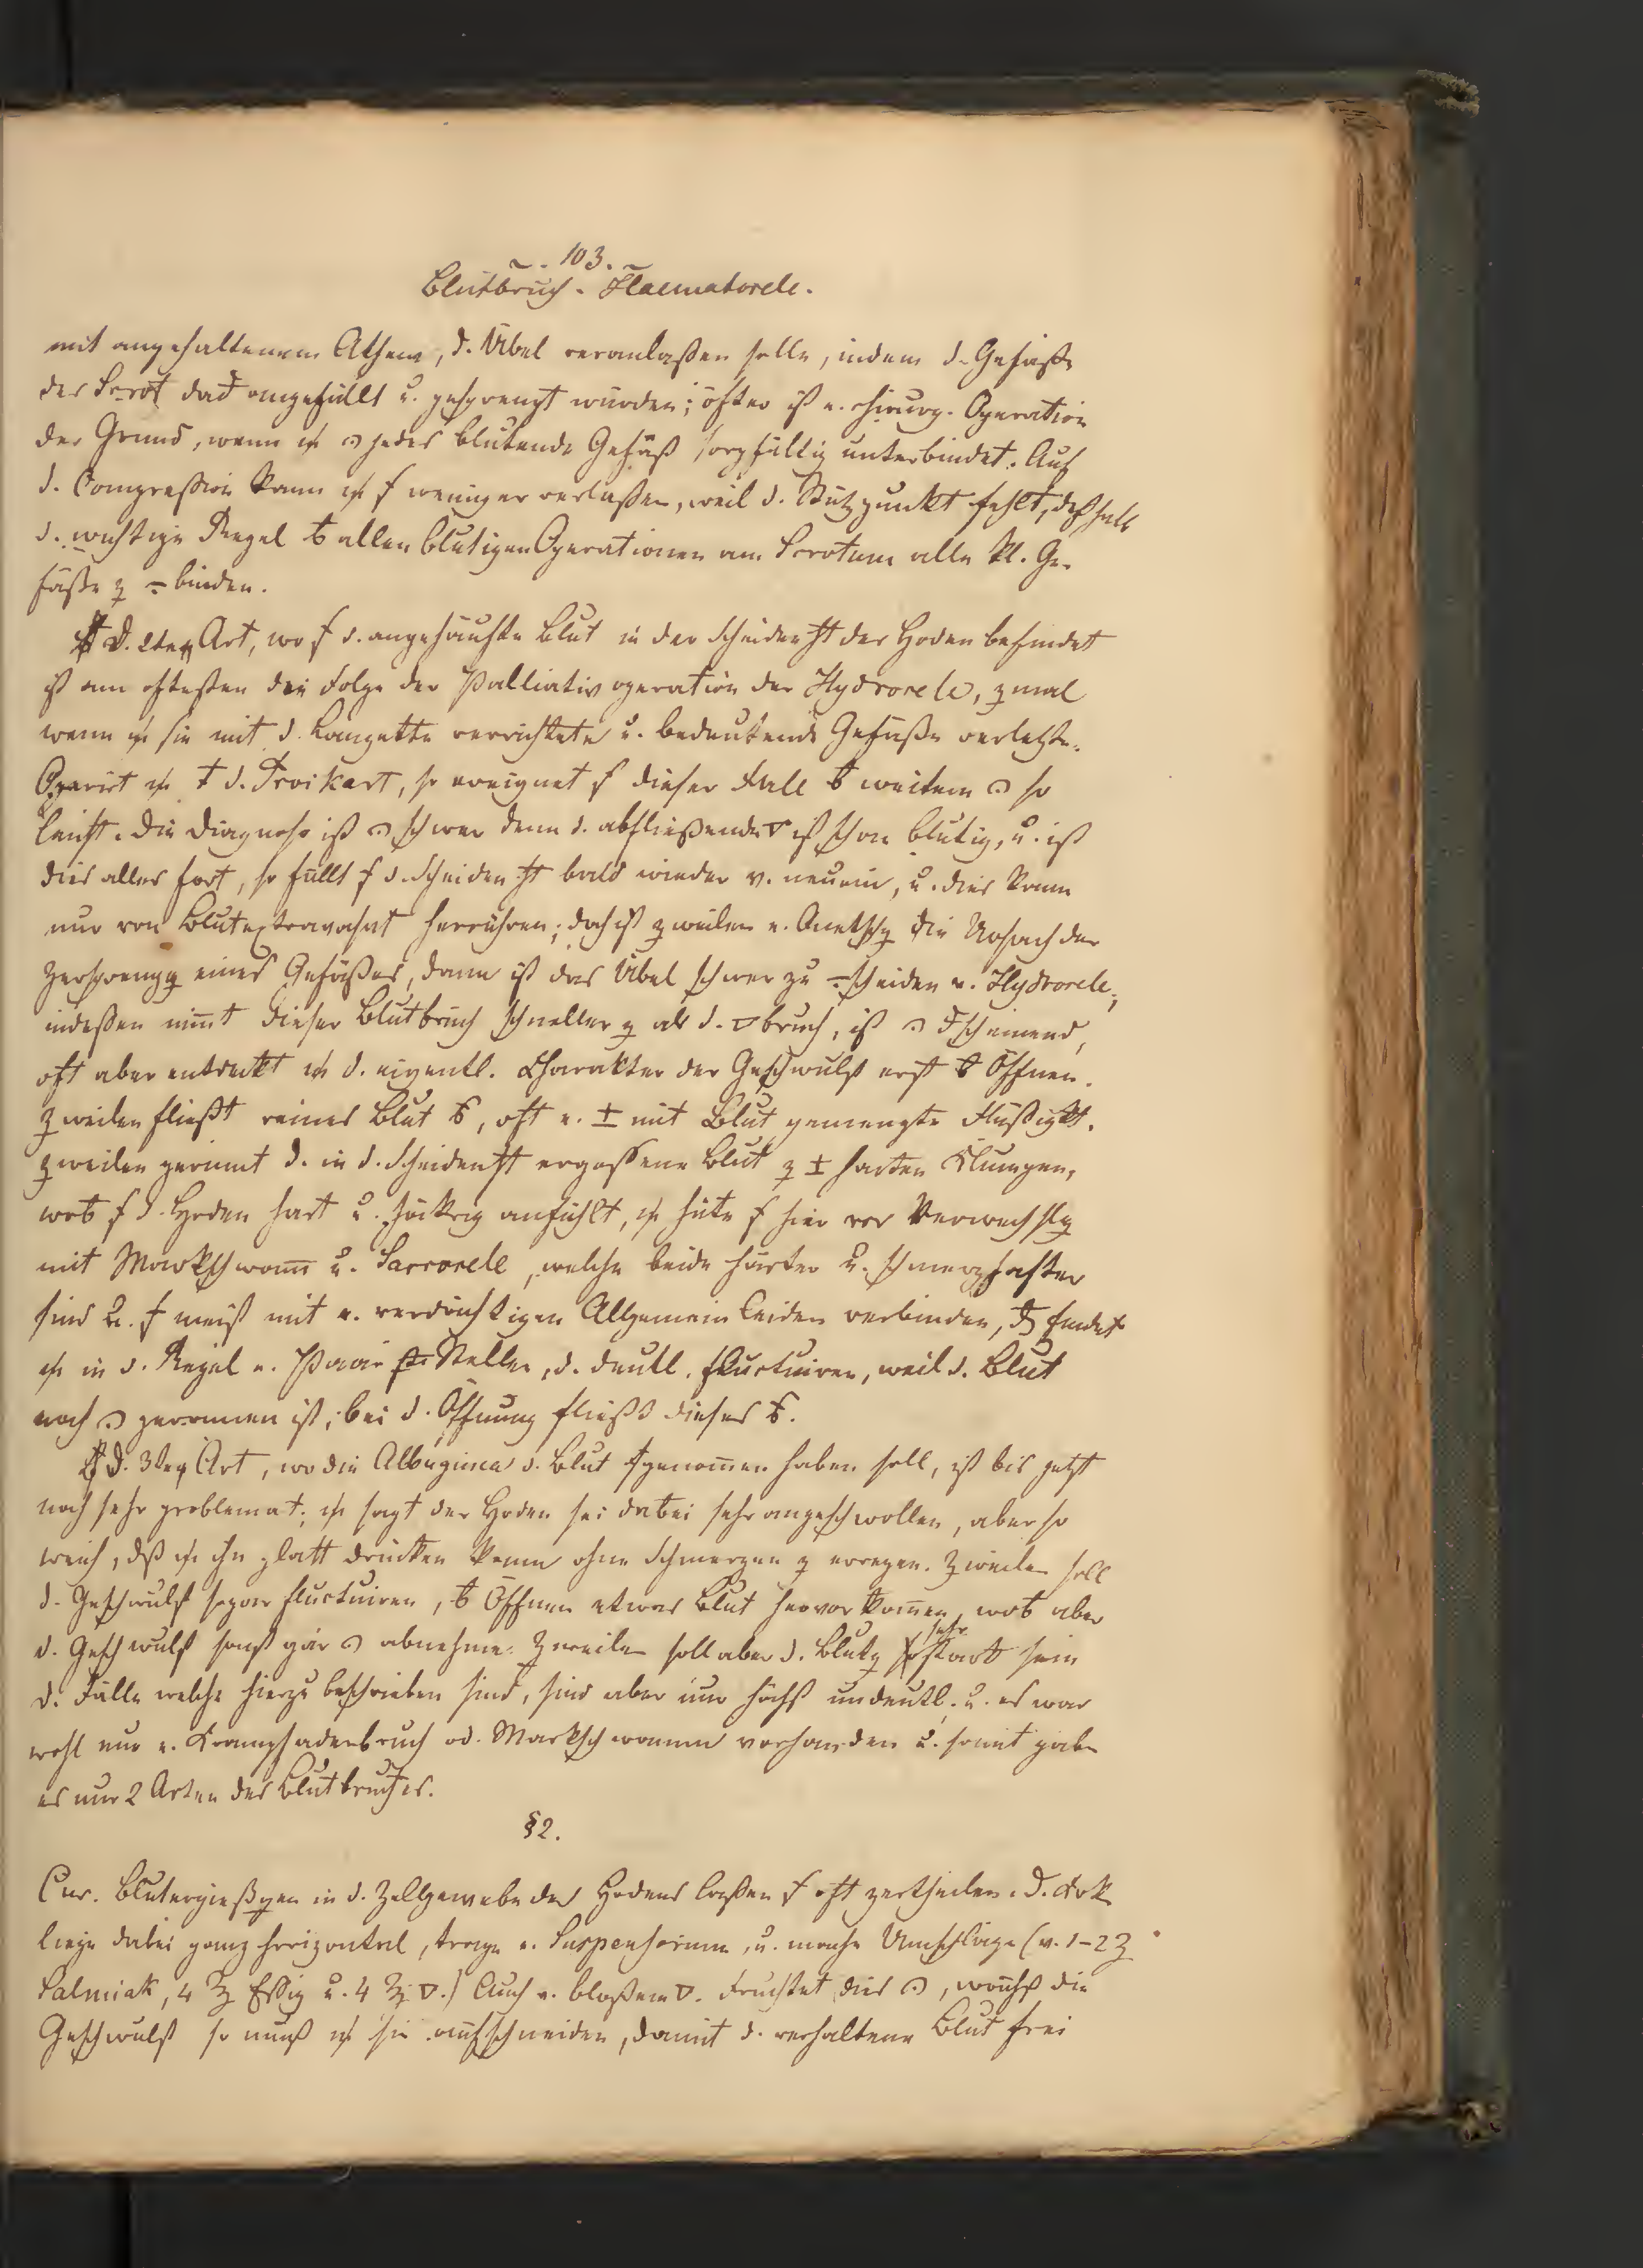 ~ . 103. ~
Blutbruch - Haematocele.
mit angehaltenem Athem, d. Übel veranlaßen solle, indem d. Gefäße
des Scrot dad angefüllt u. gesprengt würden; öfter ist e. chirurg. Operation
der Grund, wenn jedes blutende Gefäß sorgfältig unterbindet. Auf
d. Compreßion kann weniger verlaßen, weil d. Stützpunkt fehlt, deßhalb
d. wichtige Regel allen blutigen Operationen am Scrotum alle kl. Ge-
fäße z ÷ binden.
D. 2ten Art, wo d. angehäufte Blut in der Scheidenht des Hoden befindet
ist am oftesten die Folge der Palliativoperation der Hydrocele, zmal
wenn sie mit d. Lanzette verrichtete u. bedeutende Gefäße verletzte.
Operirt † d. Troikart, so ereignet dieser Fall weitem so
leicht. Die Diagnose ist schwer denn d. abfließende ▽ ist schon blutig, u. ist
dies alles fort, so füllt d. Scheidenht bald wieder v. neuem, u. dies kann
nur von Blutextravasat herrühren; doch ist zweilen e. Quetschg die Ursach der
Zersprengg eines Gefäßes, dann ist das Übel schwer zu ÷scheiden v. Hydrocele,
indeßen nimt dieser Blutbruch schneller z als d. ▽bruch, ist scheinend,
oft aber entdeckt d. eigentl. Charakter der Geschwulst erst Öffnen.
Zweilen fließt reines Blut, oft e. ± mit Blut gemengte Flüßigkt.
Zweilen gerinnt d. in d. Scheidenht ergoßene Blut z ± harten Klumpen,
d. Hoden hart u. höckrig anfühlt, hüte hier vor Verwechslg
mit Markschwam u. Sarcocele, welche beide härter u. schmerzhafter
sind u. meist mit e. verdächtigen Allgemeinleiden verbinden, findet
in d. Regel e. Paar Stellen, d. deutl. fluctuiren, weil d. Blut
noch geronnen ist; bei d. Öffnung fließt dieses.
D. 3ten Art, wo die Albuginea d. Blut genommen haben soll, ist bis jetzt
noch sehr problemat; sagt der Hoden sei dabei sehr angeschwollen, aber so
weich, dß ihn platt drücken kann ohne Schmerzen z erregen. Zweilen soll
d. Geschwulst sogar fluctuiren, Öffnen etwas Blut hervorkommen, aber
d. Geschwulst sonst gar abnehme. Zweilen soll aber d. Blutg sehr stark sein
d. Fälle welche hierzu beschrieben sind, sind aber nur höchst undeutl. u. es war
wohl nur e. Krampfaderbruch od. Markschwamm vorhanden u. somit gäbe
es nur 2 Arten des Blutbruches.
§2.
Cur. Blutergießgen in d. Zellgewebe des Hodens laßen oft zertheilen. D. Krk
liege dabei ganz horizontal, trage e. Suspensorium, u. mache Umschläge (v. 1-2 ℥
Salmiak, 4 ℥ Eßig u. 4 ℥ ▽.) Auch v. bloßem ▽. Fruchtet dies, wächst die
Geschwulst so muß sie aufschneiden, damit d. verhaltene Blut frei